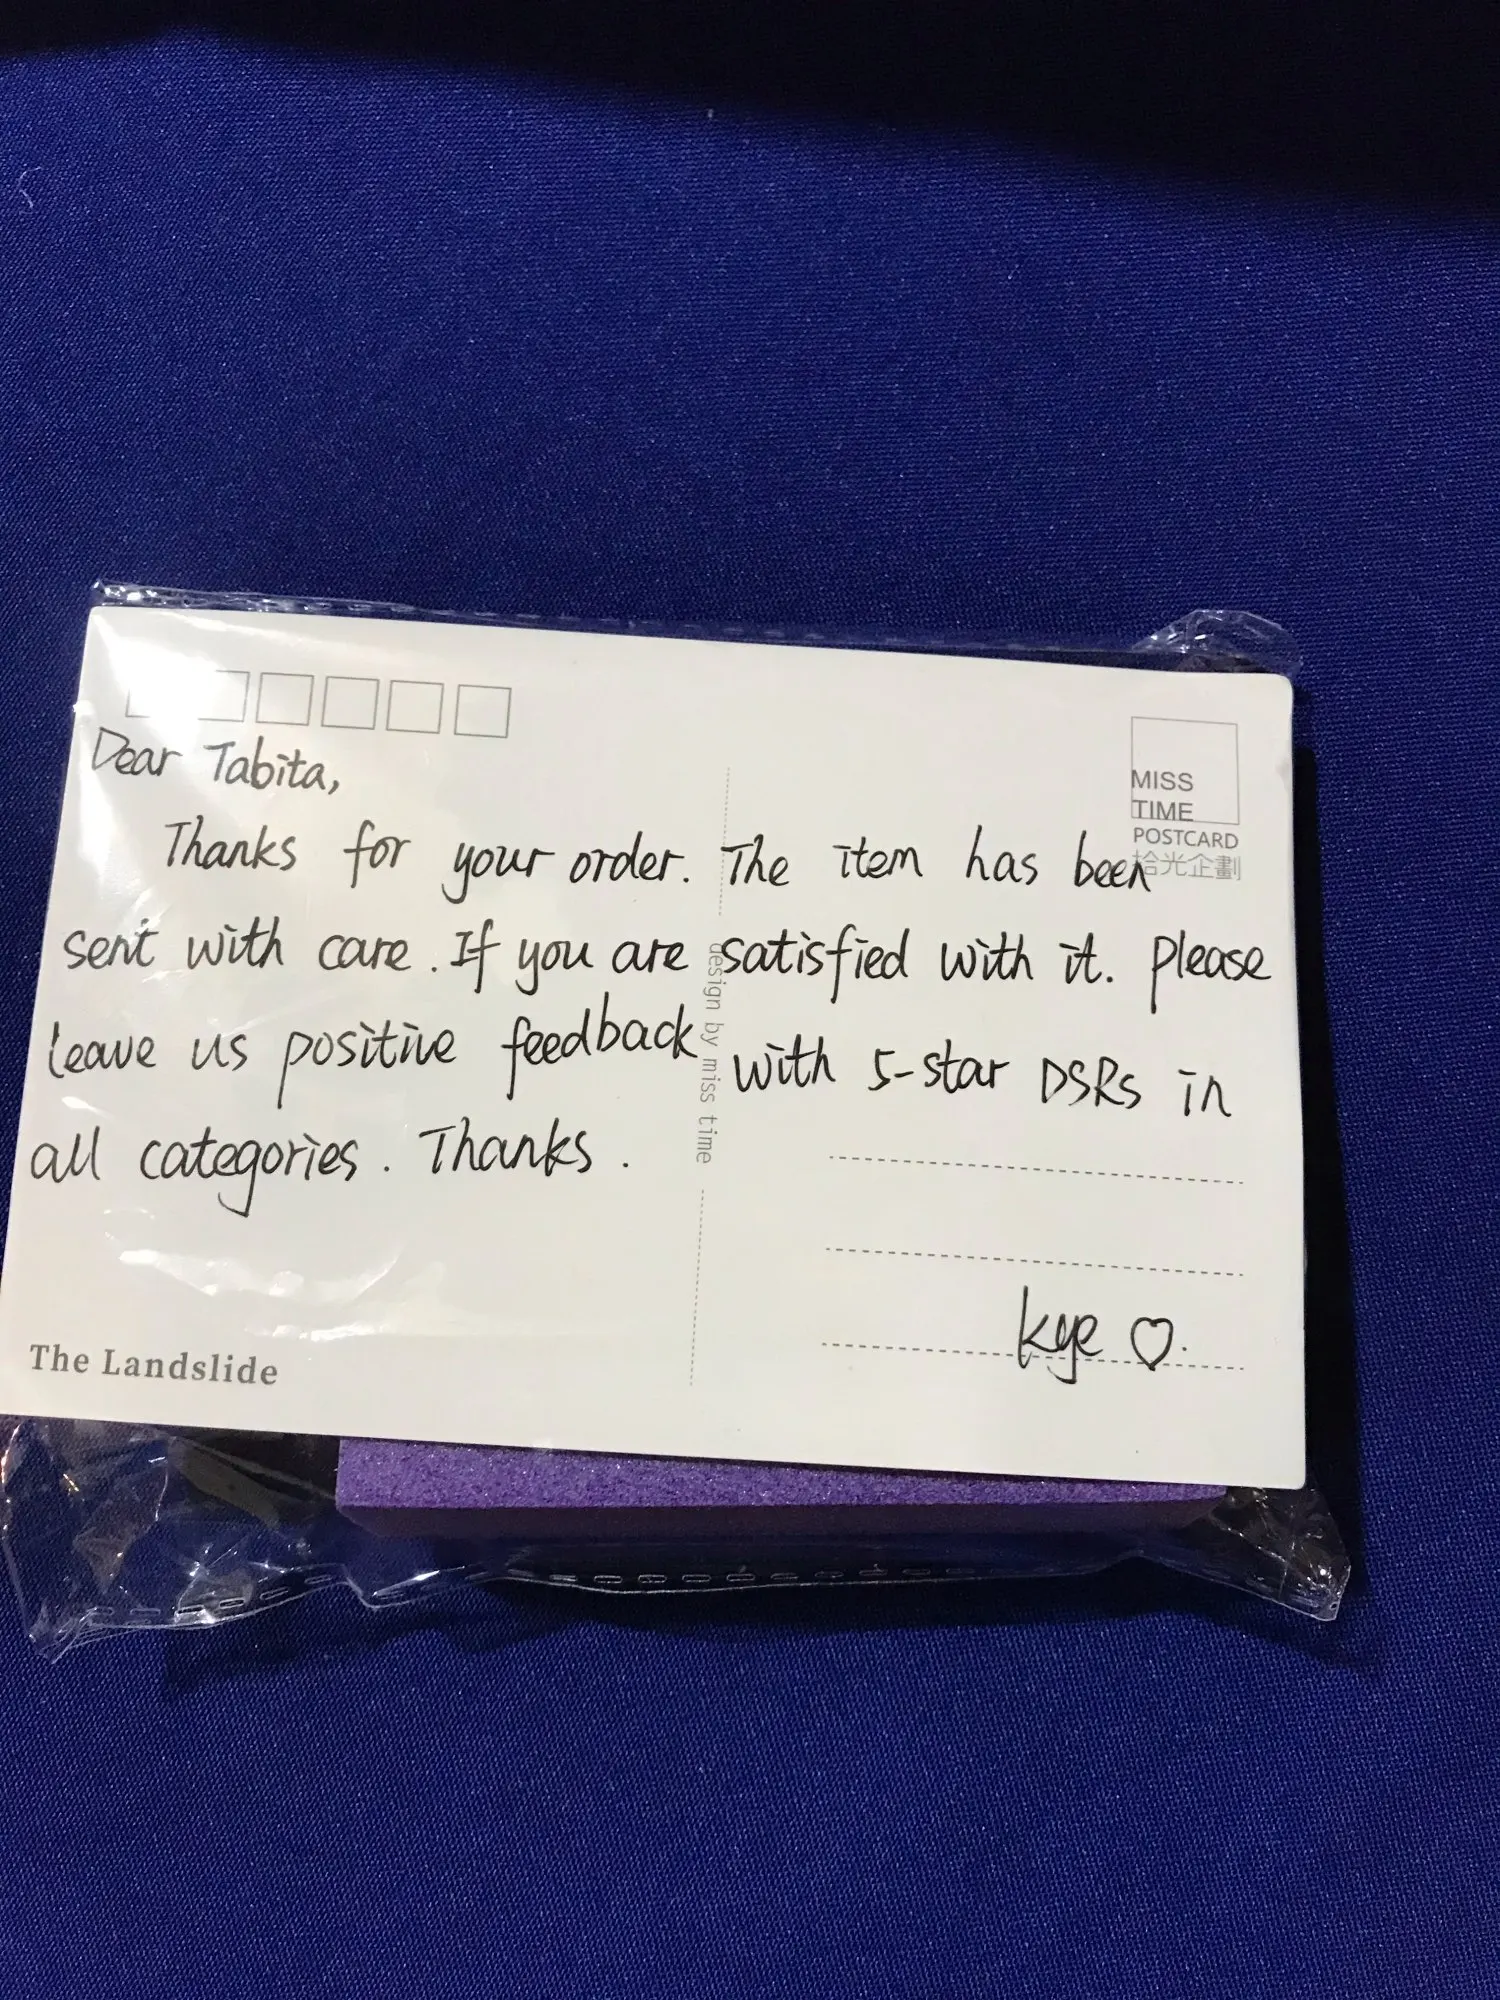 MISS
TIME
POSTCARD
拾光企劃
Dear Tabita,
Thanks for your order. The item has been
sent with care. If you are satisfied with it. Please
leave us positive feedback with 5-star DSRs in
all categories. Thanks.
design by miss time
Kye ♡.
The Landslide